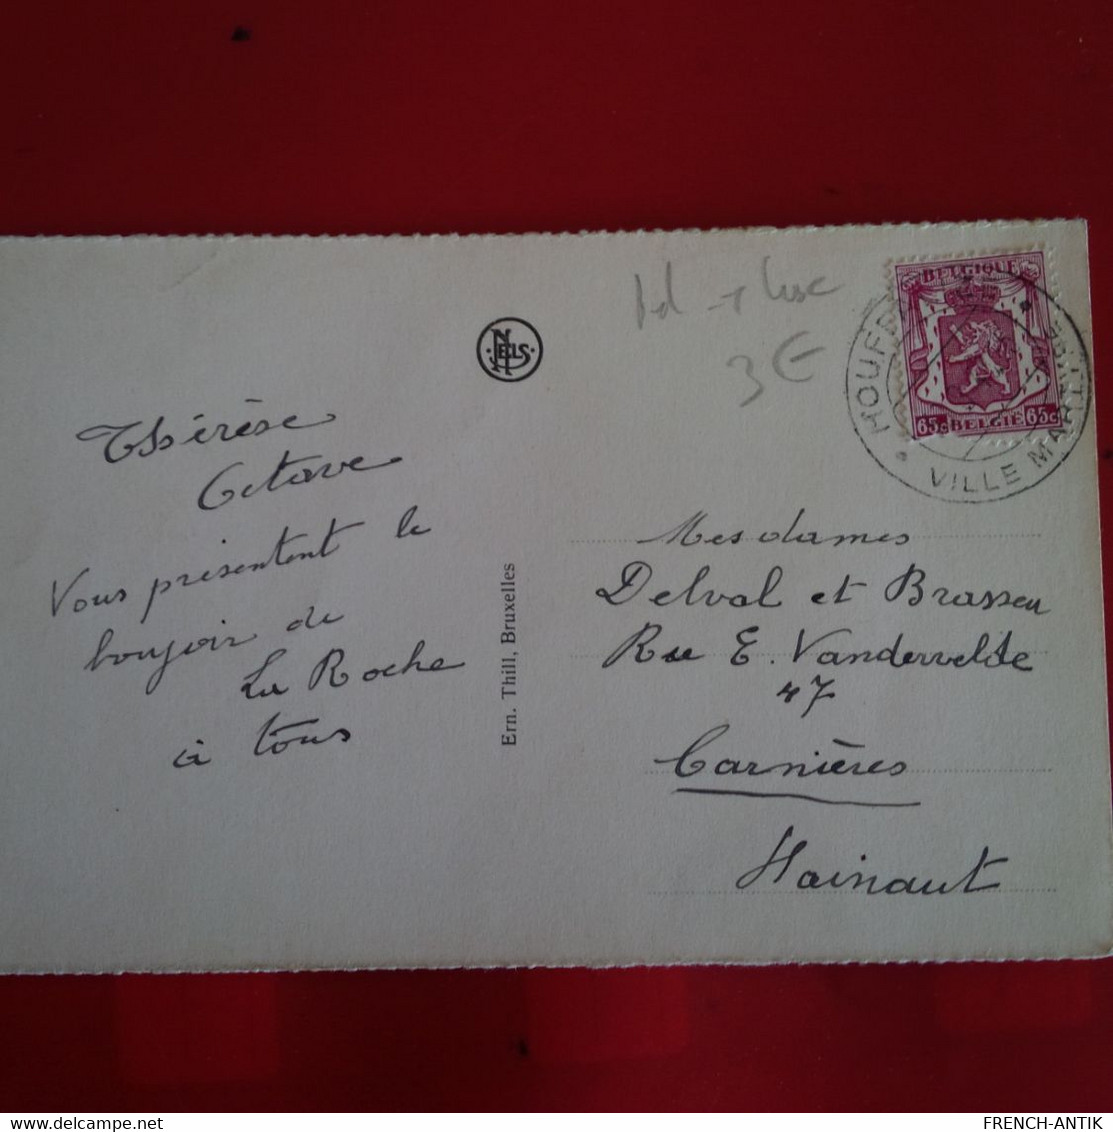 Thérèse
Octave
Vous présentent le
bonjoir de
La Roche
à tous
NELS
Ern. Thill, Bruxelles
3 €
BELGIQUE
65c BELGIE 65c
HOUFF
VILLE MARTYRE
Mesdames
Delval et Brasseu
Rue E. Vandervelde
47
Carnières
Hainaut
FRENCH-ANTIK